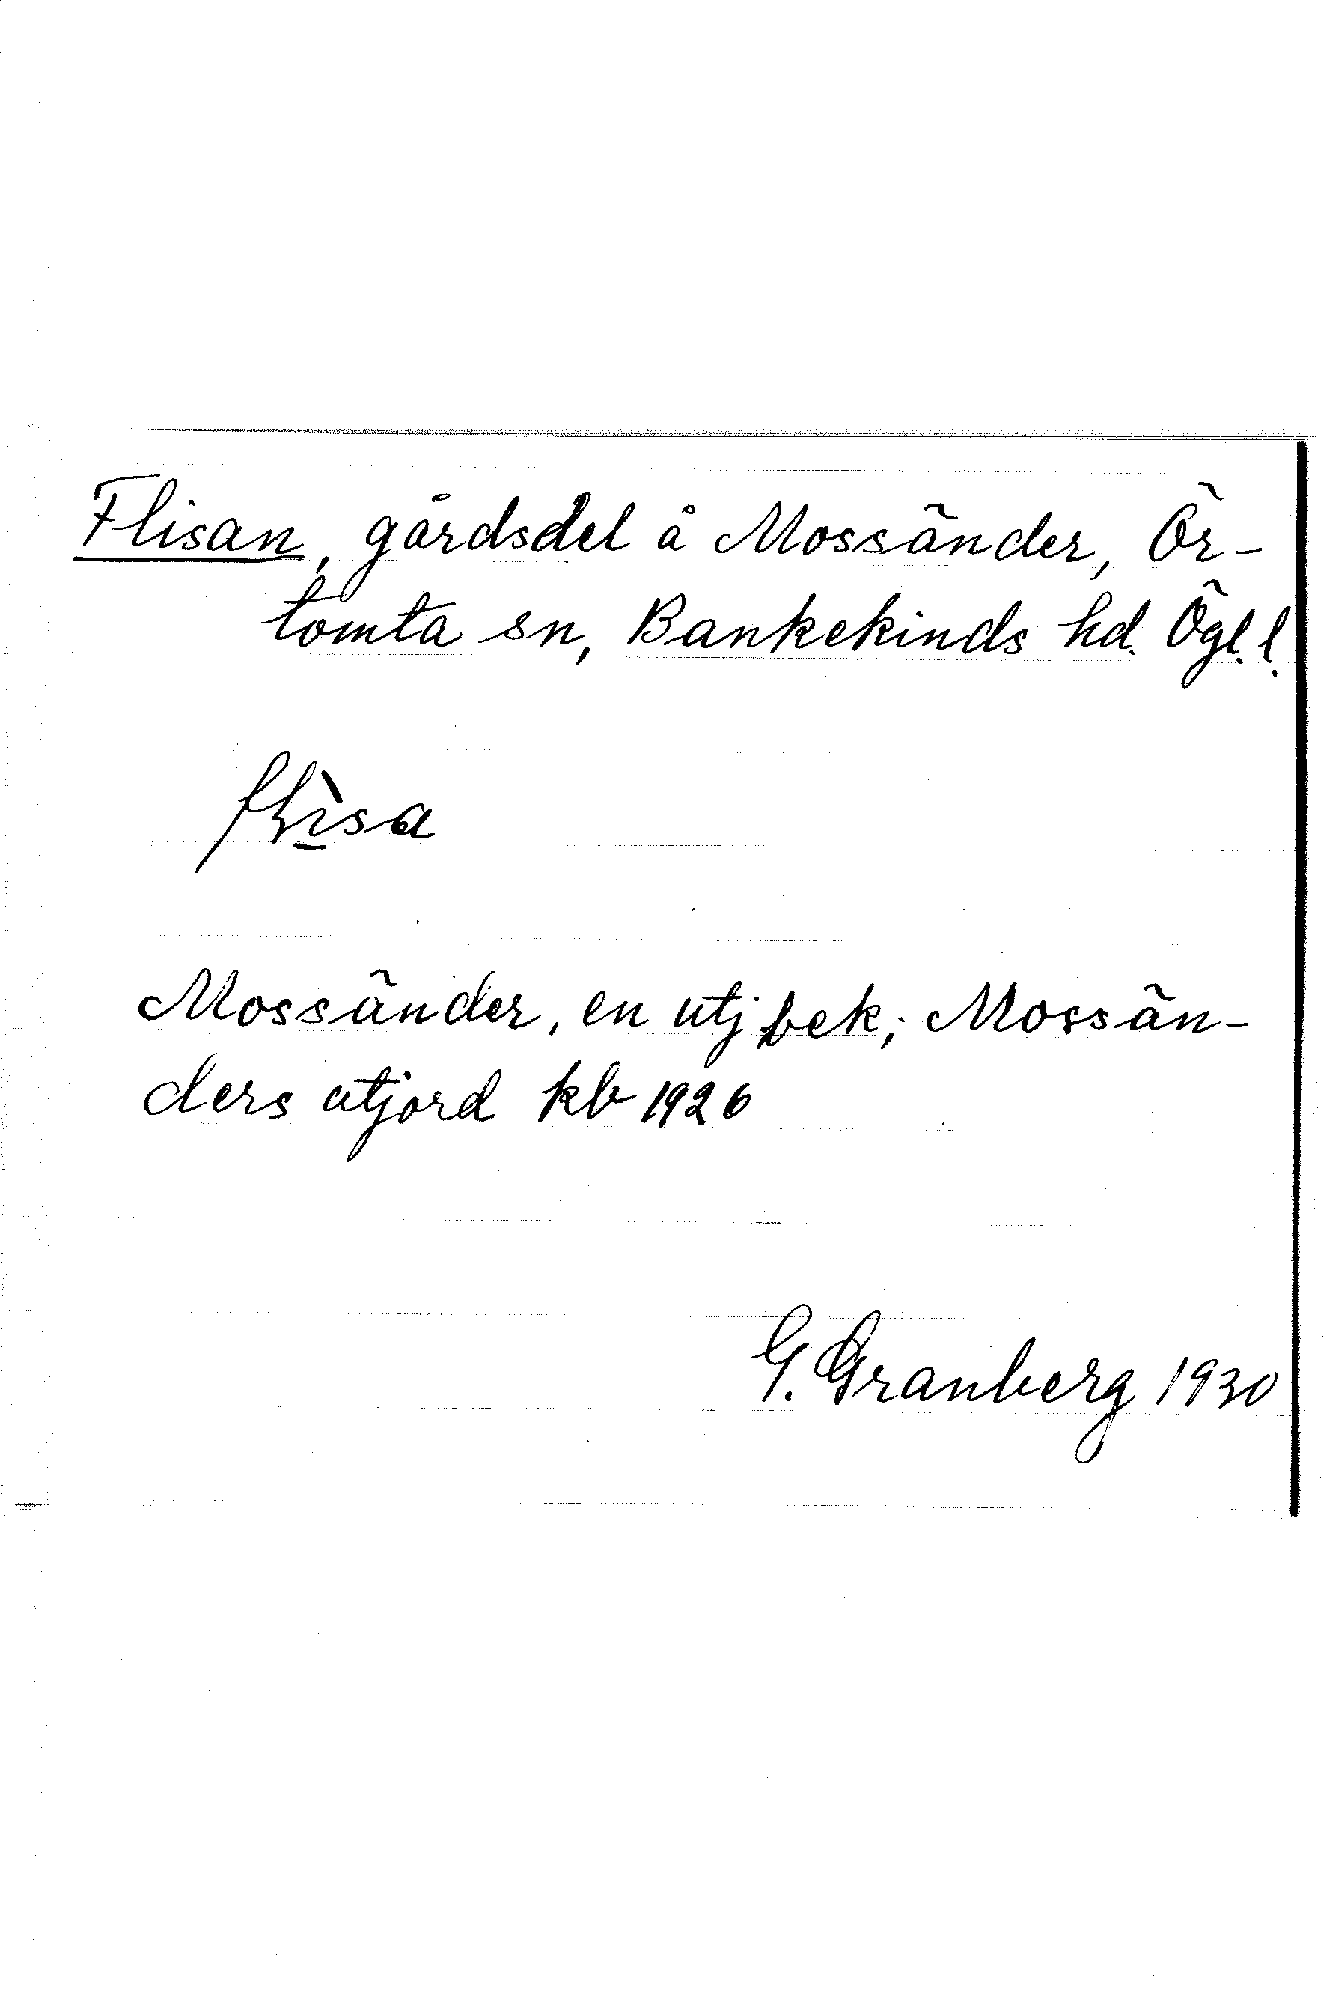 Flisan, gårdsdel å Mossänder, Ör-
tomta sn, Bankekinds hd. Ögl. l.
flìsa
Mossänder, en utj bek; Mossän-
ders utjord kb 1926
G. Granberg 1930